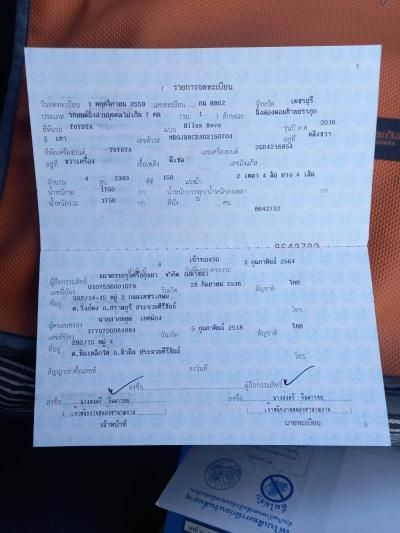 8
รายการจดทะเบียน
วันจดทะเบียน 1 พฤศจิกายน 2559 เลขทะเบียน กน 8862 จังหวัด เพชรบุรี
ประเภท รถยนต์นั่งส่วนบุคคลไม่เกิน 7 คน (รย 1 ) ลักษณะ นั่งสองตอนท้ายบรรทุก
ยี่ห้อรถ TOYOTA แบบ Hilux Revo รุ่นปี ค.ศ. 2016
สี เทา เลขตัวรถ อยู่ที่
ยี่ห้อเครื่องยนต์ TOYOTA เลขเครื่องยนต์ 2GD4216854
อยู่ที่ ขวาเครื่อง เชื้อเพลิง ดีเซล เลขถังแก๊ส
จำนวน 4 สูบ 2393 ซีซี 150 แรงม้า 2 เพลา 4 ล้อ ยาง 4 เส้น
น้ำหนักรถ 1750 กก. น้ำหนักบรรทุก/น้ำหนักลงเพลา กก.
น้ำหนักรวม 1750 กก. ที่นั่ง 5 คน
8642732
8642732
เจ้าของรถ
3 วันที่ครอบครองรถ 2 กุมภาพันธ์ 2564
ผู้ถือกรรมสิทธิ์ ธนาคารกรุงศรีอยุธยา จำกัด (มหาชน)
เลขที่บัตร 0107536001079 วันเกิด 28 กันยายน 2536 สัญชาติ ไทย
ที่อยู่ 502/14-15 หมู่ 2 ถนนเพชรเกษม
ต.วังก์พง อ.ปราณบุรี ประจวบคีรีขันธ์ โทร.
ผู้ครอบครอง
เลขที่บัตร 3770700084884 วันเกิด 5 กุมภาพันธ์ 2518 สัญชาติ ไทย
ที่อยู่ 292/15 หมู่ 4
ต.หินเหล็กไฟ อ.หัวหิน ประจวบคีรีขันธ์ โทร.
สัญญาเช่าซื้อเลขที่ ลงวันที่
ลงชื่อ ผู้ถือกรรมสิทธิ์
ลงชื่อ ลงชื่อ
เจ้าหน้าที่ นายทะเบียน
9